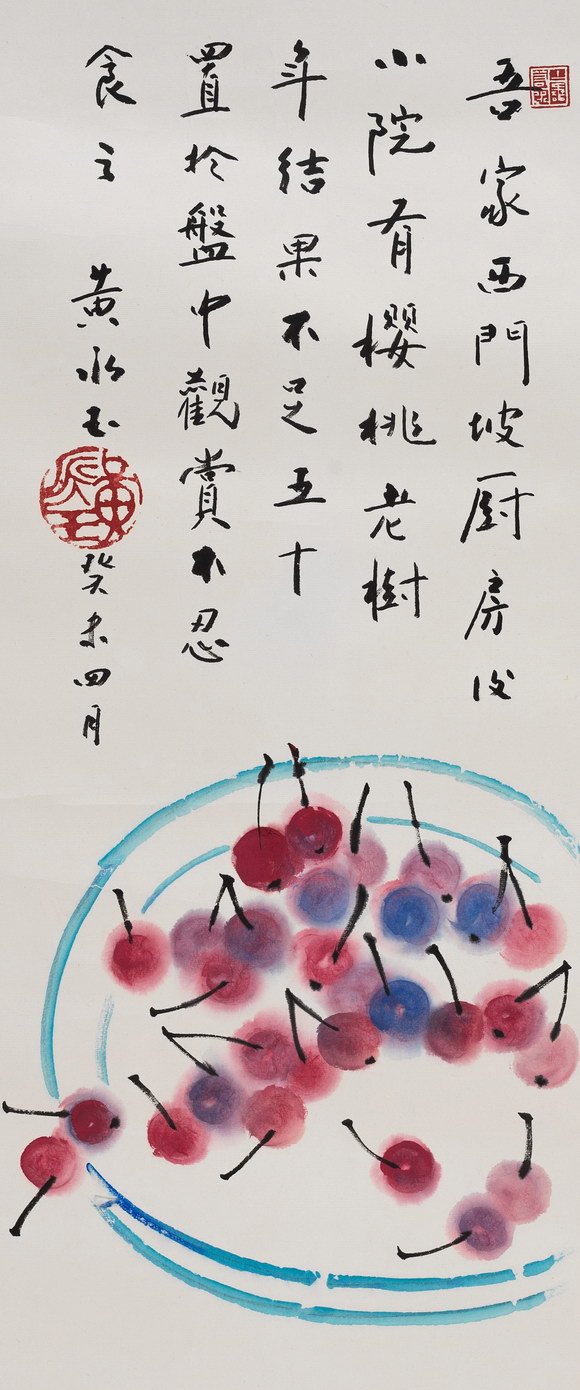 吾家西門坡厨房后
小院有櫻桃老樹
年结果不足五十
置扵盤中觀賞不忍
食之 黄永玉
黄永玉
癸未四月